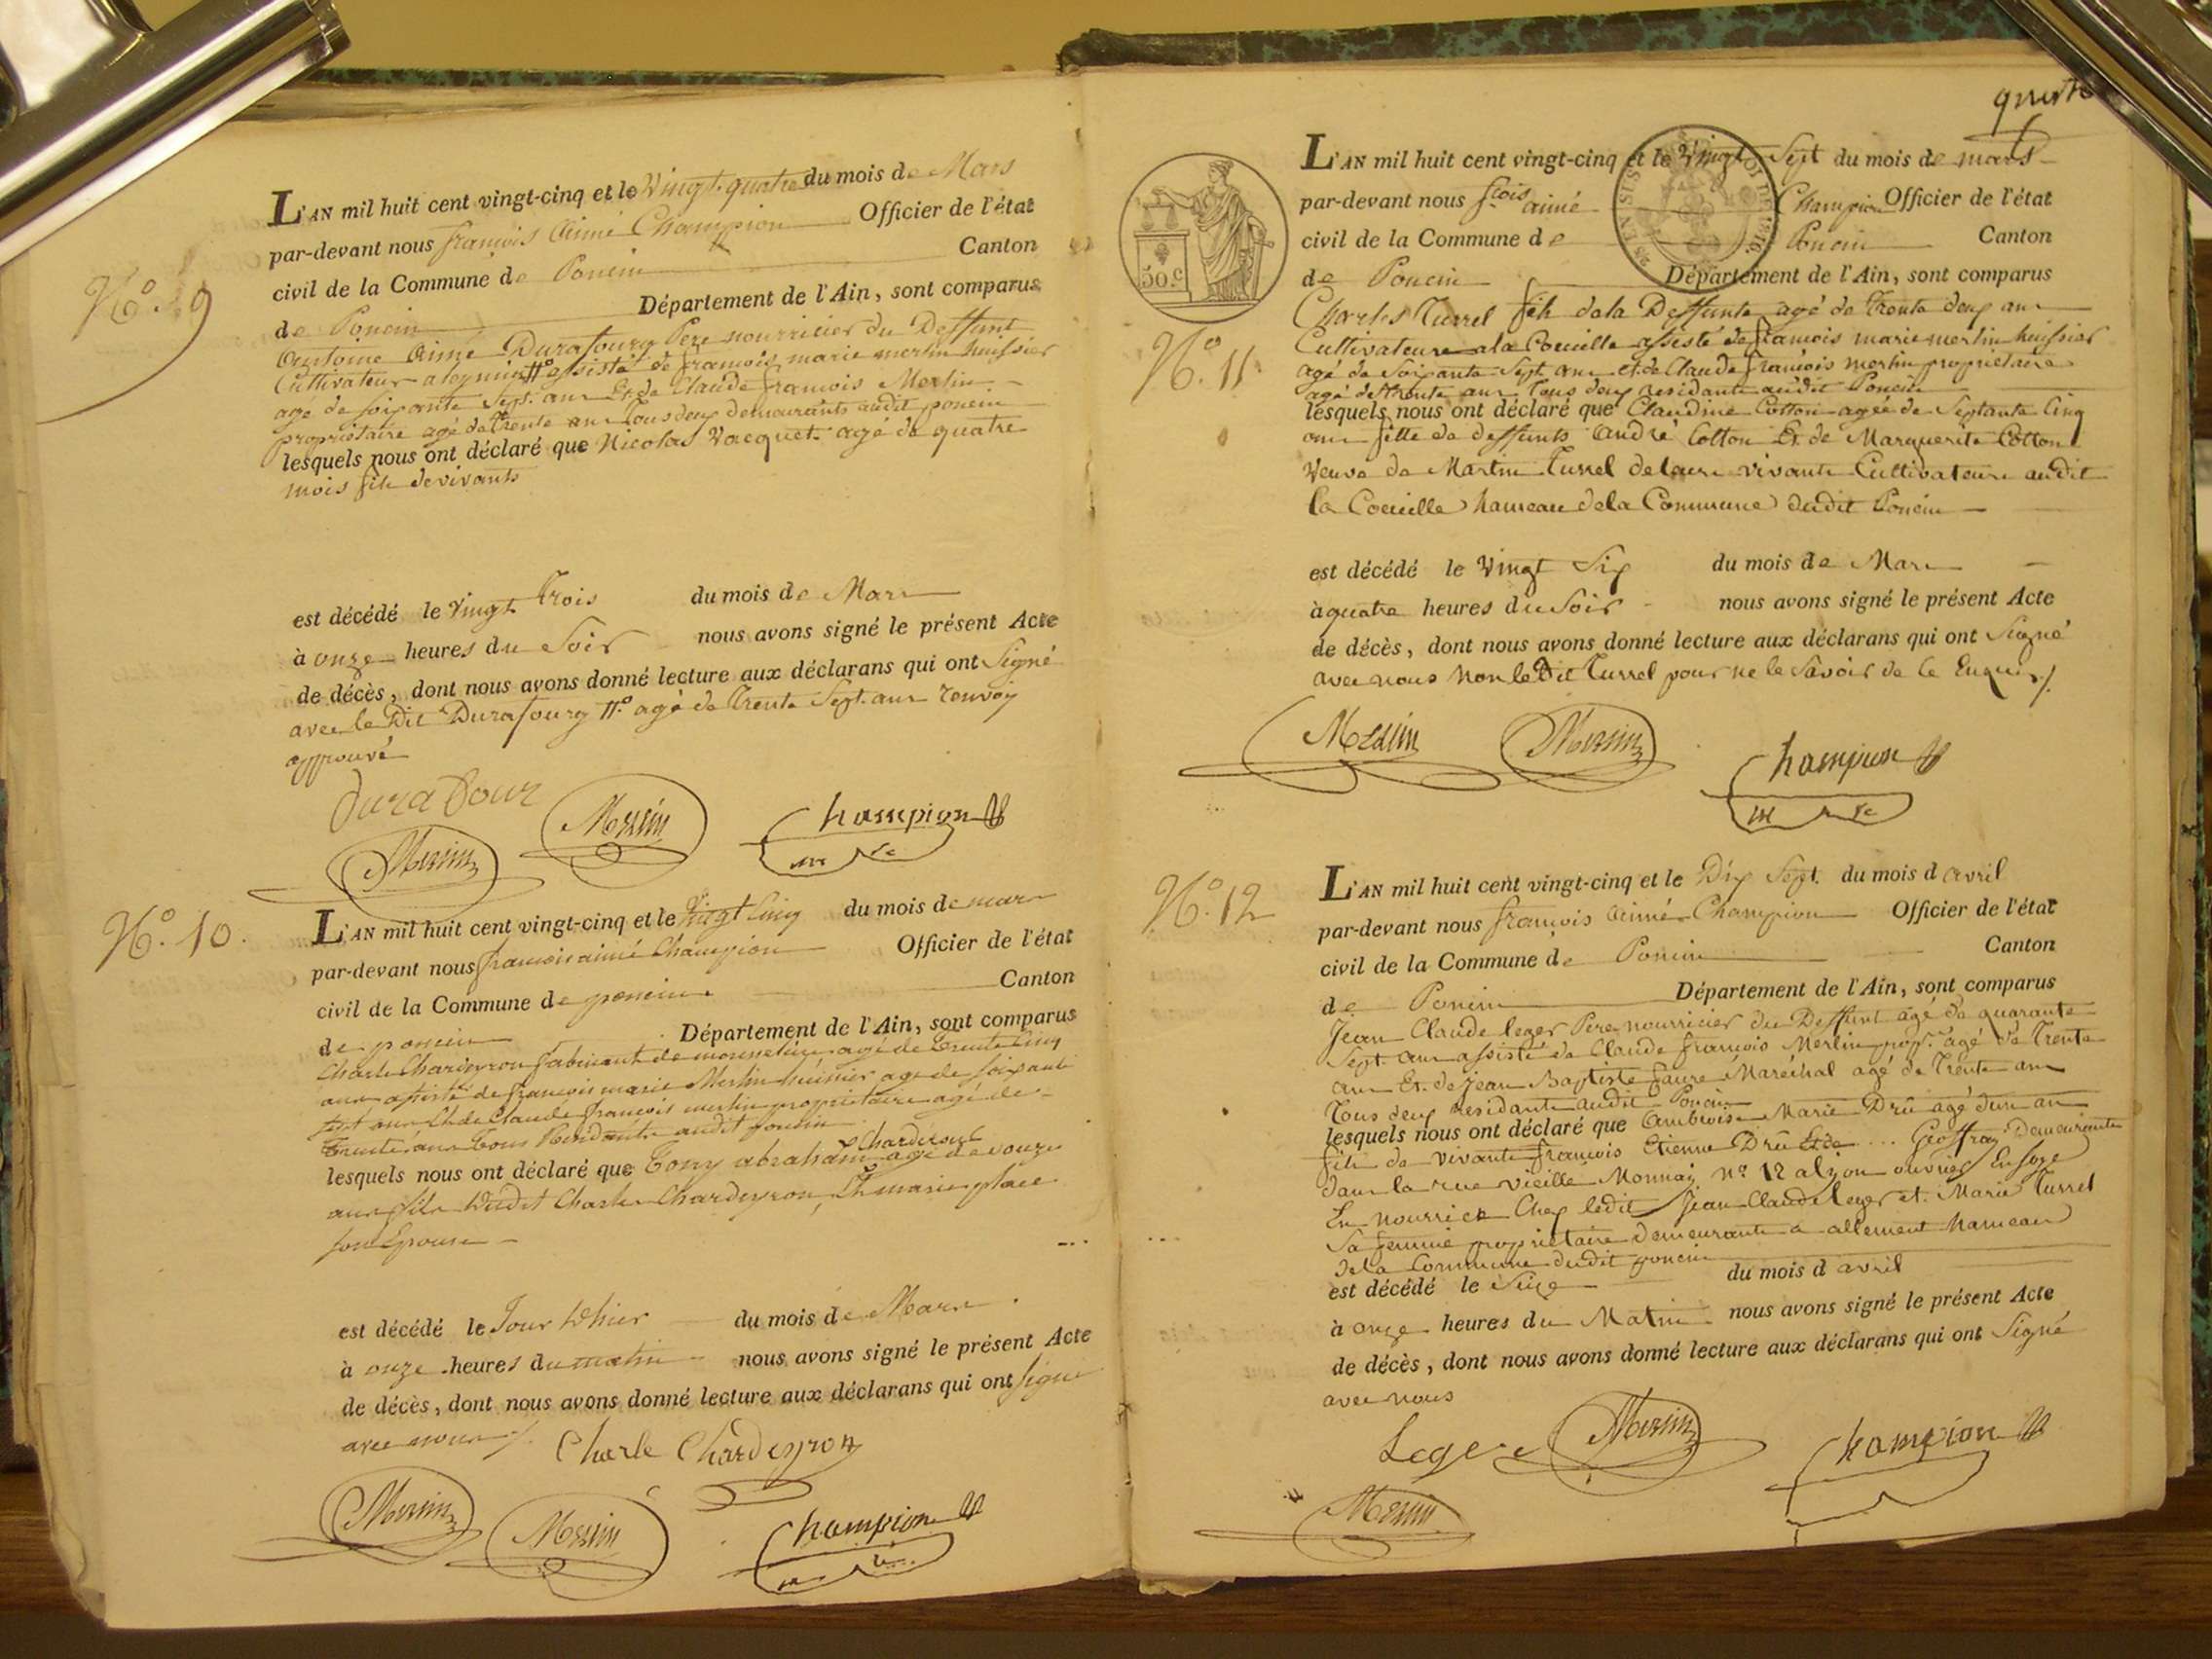 N.º 9
L'AN mil huit cent vingt-cinq et le Vingt quatre du mois de Mars
par-devant nous françois Aimé Champion Officier de l'état
civil de la Commune de Poncin Canton
de Poncin Département de l'Ain, sont comparus
Antoine Aimé Durafourg Pere nourricier du Deffunt
Cultivateur a assisté de françois marie merlin huissier
agé de soixante Sept ans Et de Claude françois Merlin
propriétaire agé de trente ans Tous deux demeurants audit poncin
lesquels nous ont déclaré que Nicolas Vacquet agé de quatre
mois fils de vivants
est décédé le Vingt Trois du mois de Mars
à onze heures du Soir nous avons signé le présent Acte
de décès, dont nous avons donné lecture aux déclarans qui ont Signé
avec le Dit Durafourg agé de Trente Sept ans renvoy
approuvé
Durafour
Merlin Merlin Champion
N.º 10.
L'AN mil huit cent vingt-cinq et le Vingt Cinq du mois de mars
par-devant nous francois aimé Champion Officier de l'état
civil de la Commune de poncin Canton
de poncin Département de l'Ain, sont comparus
Charle Chardeyron fabricant de mousseline agé de Trente Cinq
ans assisté de francois marie Merlin huissier agé de soixante
sept ans Et de Claude françois merlin propriétaire agé de
Trente ans Tous Residants audit poncin
lesquels nous ont déclaré que Tony abraham Chardeyron agé de onze
ans fils dudit Charle Chardeyron Et marie place
son Epouse
est décédé le Jour d'hier du mois de Mars
à onze heures du matin nous avons signé le présent Acte
de décès, dont nous avons donné lecture aux déclarans qui ont signé
avec nous
Charle Chardeyron
Merlin Merlin Champion
L'AN mil huit cent vingt-cinq et le Vingt Sept du mois de mars
par-devant nous f.çois aimé Champion Officier de l'état
civil de la Commune de Poncin Canton
50.c
de Poncin Département de l'Ain, sont comparus
N.º 11
Charles Turrel fils de la Deffunte agé de trente deux ans
Cultivateur a la Coeuille assisté de francois marie merlin huissier
agé de Soixante Sept ans et de Claude françois merlin propriétaire
agé de trente ans Tous deux residants audit Poncin
lesquels nous ont déclaré que Claudine Cotton agée de Septante Cinq
ans fille de deffunts André Cotton Et de Marguerite Cotton
Veuve de Martin Turrel de leurs vivants Cultivateurs audit
la Coeuille hameau de la Commune dudit Poncin
est décédé le Vingt Six du mois de Mars
à quatre heures du Soir nous avons signé le présent Acte
de décès, dont nous avons donné lecture aux déclarans qui ont Signé
avec nous Non le Dit Turrel pour ne le Savoir de Ce Enquis
Merlin Merlin Champion
N.º 12
L'AN mil huit cent vingt-cinq et le Dix Sept du mois d avril
par-devant nous françois Aimé Champion Officier de l'état
civil de la Commune de Poncin Canton
de Poncin Département de l'Ain, sont comparus
Jean Claude leger Pere nourricier du Deffunt agé de quarante
Sept ans assisté de Claude françois Merlin prop.re agé de Trente
ans Et de Jean Baptiste faure Maréchal agé de Trente ans
Tous deux residants audit Poncin
lesquels nous ont déclaré que Ambroise Marie Dru agé d'un an
fils de vivants françois Etienne Dru Et de ... Geoffray Demeurants
dans la rue vieille Monnay n.º 12 a lyon ouvrier En soye
En nourrice Chez ledit Jean Claude leger et Marie Turrel
Sa femme propriétaire demeurants a allement hameau
de la Commune dudit poncin
est décédé le Seize du mois d avril
à onze heures du Matin nous avons signé le présent Acte
de décès, dont nous avons donné lecture aux déclarans qui ont Signé
avec nous
Leger Merlin Champion